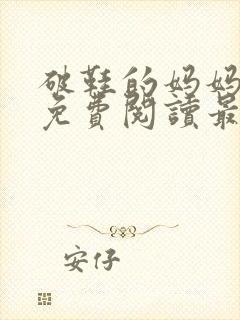 破鞋的妈妈
免費閱讀最
安仔